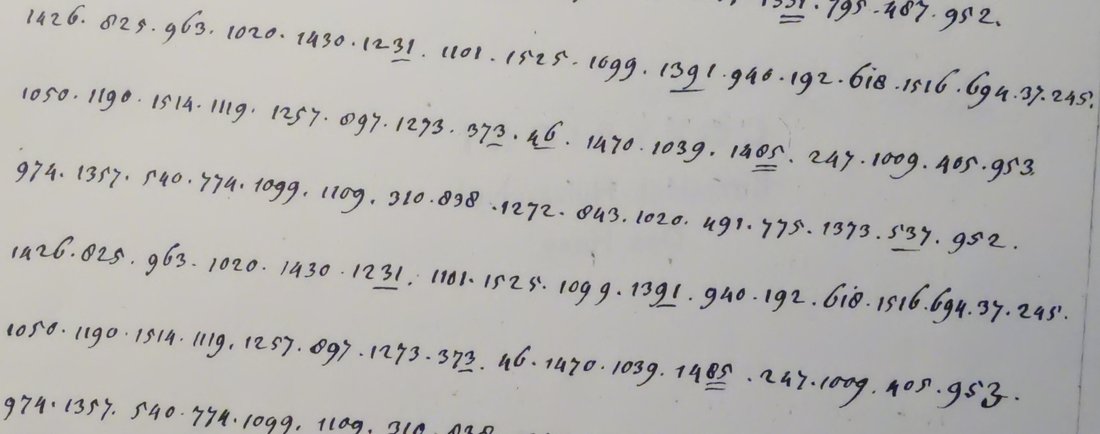 1331. 795. 487. 952.
1426. 825. 963. 1020. 1430. 1231. 1101. 1525. 1099. 1391. 940. 192. 618. 1516. 694. 37. 245.
1050. 1190. 1514. 1119. 1257. 897. 1273. 373. 46. 1470. 1039. 1485. 247. 1009. 405. 953.
974. 1357. 540. 774. 1099. 1109. 310. 898. 1272. 843. 1020. 491. 775. 1373. 537. 952.
1426. 825. 963. 1020. 1430. 1231. 1101. 1525. 1099. 1391. 940. 192. 618. 1516. 694. 37. 245.
1050. 1190. 1514. 1119. 1257. 897. 1273. 373. 46. 1470. 1039. 1485. 247. 1009. 405. 953.
974. 1357. 540. 774. 1099. 1109. 310.